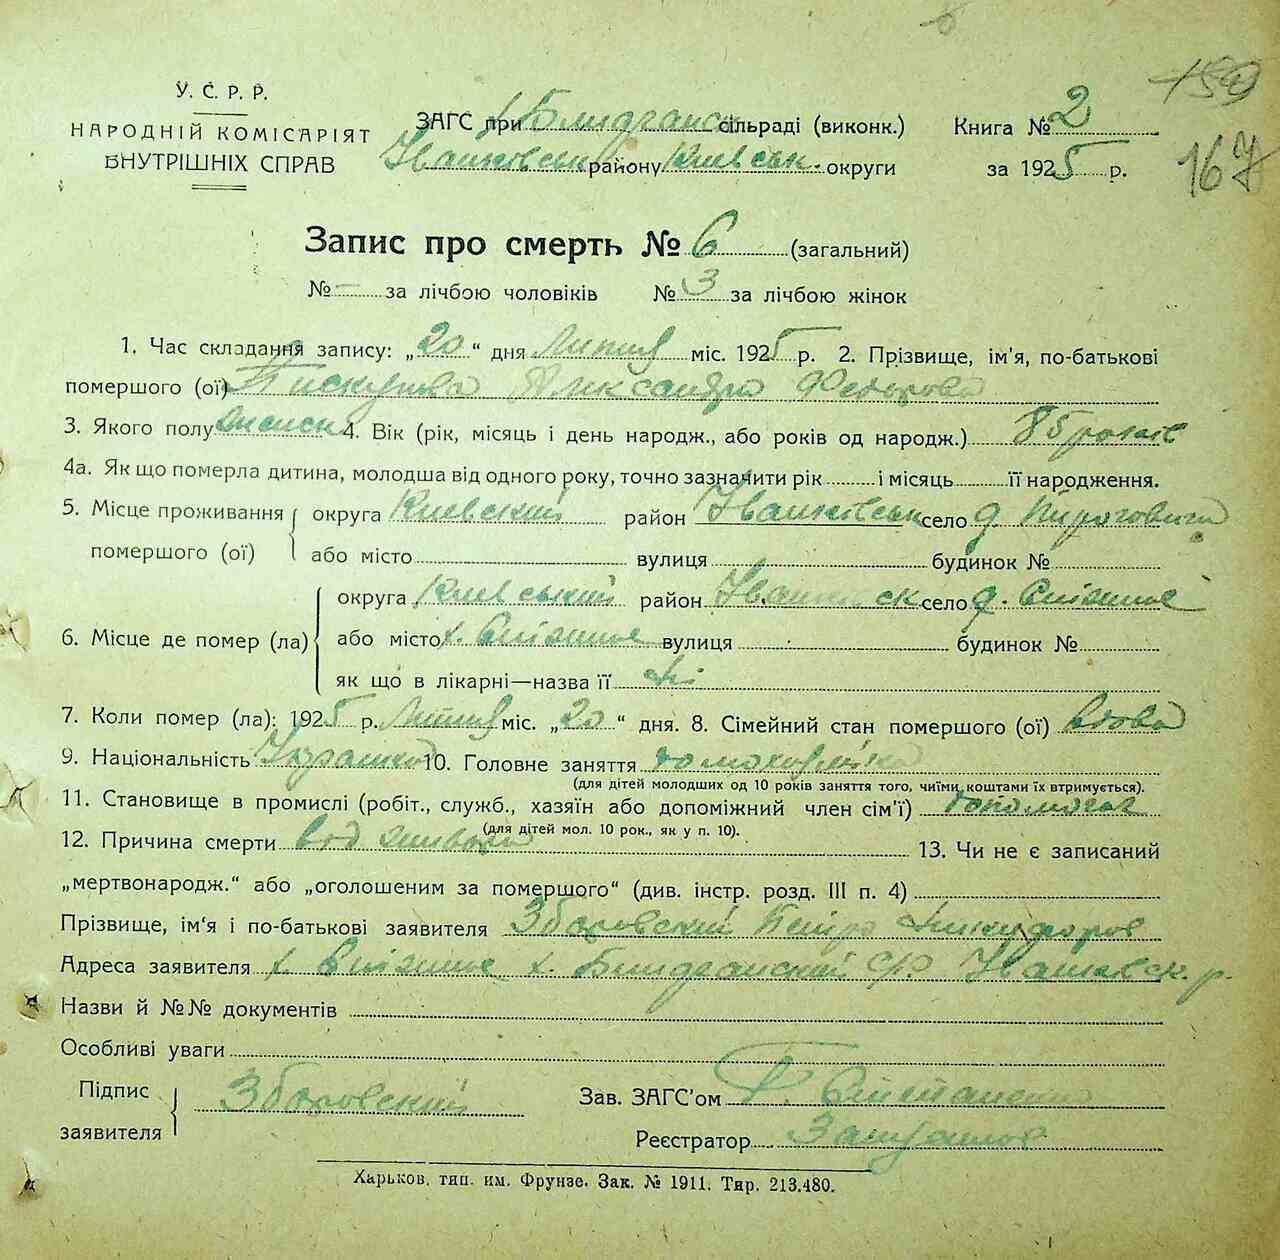 159
167
У. С. Р. Р.
НАРОДНІЙ КОМІСАРІЯТ
ВНУТРІШНІХ СПРАВ
ЗАГС при сільраді (виконк.) Книга № 2
району Киевськ. округи за 1925 р.
Запис про смерть № 6 (загальний)
№ — за лічбою чоловіків № 3 за лічбою жінок
1. Час складання запису: „20“ дня Липня міс. 1925 р. 2. Прізвище, ім'я, по-батькові
помершого (ої) Пискунова Александра Федорова
3. Якого полу 4. Вік (рік, місяць і день народж., або років од народж.) 85 роков
4а. Як що померла дитина, молодша від одного року, точно зазначити рік і місяць її народження.
5. Місце проживання помершого (ої) округа Киевский район Іванківськ село д. Пироговичи
або місто вулиця будинок №
6. Місце де помер (ла) округа Киевський район село д.
або місто х. вулиця будинок №
як що в лікарні—назва її
7. Коли помер (ла): 1925 р. Липня міс. „20“ дня. 8. Сімейний стан помершого (ої) вдова
9. Національність 10. Головне заняття
(для дітей молодших од 10 років заняття того, чиїми коштами їх втримується).
11. Становище в промислі (робіт., служб., хазяїн або допоміжний член сім'ї) допомогає
(для дітей мол. 10 рок., як у п. 10).
12. Причина смерти від 13. Чи не є записаний
„мертвонародж.“ або „оголошеним за помершого“ (див. інстр. розд. III п. 4)
Прізвище, ім'я і по-батькові заявителя Збаровский Петро Никифоров
Адреса заявителя х. х.
Назви й №№ документів
Особливі уваги
Підпис заявителя Збаровский Зав. ЗАГС'ом Степаненко
Реєстратор
Харьков. тип. им. Фрунзе. Зак. № 1911. Тир. 213.480.